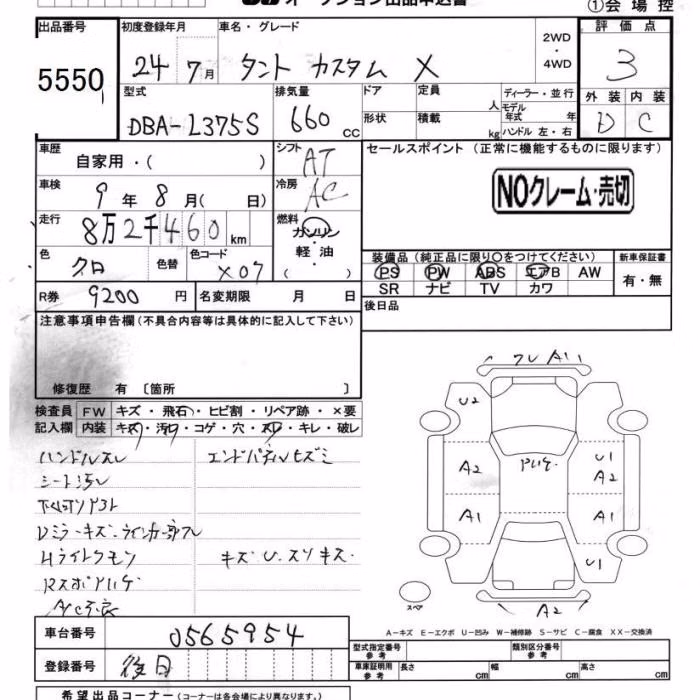 オークション出品申込書
①会場控
出品番号 5550
初度登録年月 24 7月
車名・グレード タント カスタム X
2WD・4WD
評価点 3
型式 DBA-L375S
排気量 660 cc
ドア 形状
定員 人 積載 kg
ディーラー・並行
モデル年式 年
ハンドル 左・右
外装 D 内装 C
車歴 自家用・( )
シフト AT
セールスポイント (正常に機能するものに限ります)
車検 9年8月( 日)
冷房 AC
NOクレーム・売切
走行 8万2千460km
燃料 ガソリン 軽油 ( )
色 クロ 色替 色コード X07
装備品 (純正品に限り○をつけてください) 新車保証書
PS PW ABS エアB AW 有・無
SR ナビ TV カワ
R券 9200円 名変期限 月 日
後日品
注意事項申告欄 (不具合内容等は具体的に記入して下さい)
修復歴 有 〔箇所 〕
検査員 FW キズ・飛石・ヒビ割・リペア跡・×要
記入欄 内装 キズ・汚れ・コゲ・穴・スレ・キレ・破レ
ハンドルスレ
シート汚レ
Dミラーキズ・ウィンカー部ワレ
Hライトクモリ キズ U. スリキズ
A/C不良
ワレ A1
U2
A2
U1
A2
A1
A1
U1
A2
スペア
A-キズ E-エクボ U-凹み W-補修跡 S-サビ C-腐食 XX-交換済
車台番号 0565954
型式指定番号 参考 類別区分番号 参考
登録番号 後日
車庫証明用 参考 長さ cm 幅 cm 高さ cm
希望出品コーナー (コーナーは各会場により異なります)